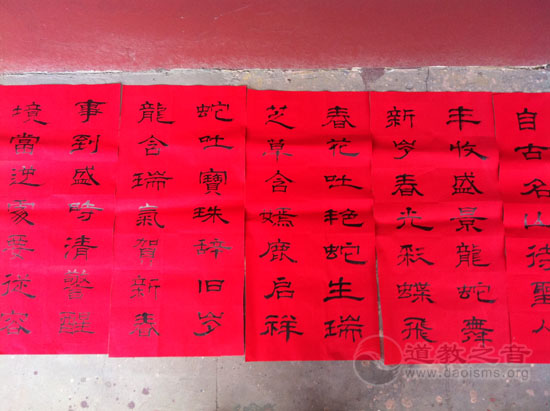 自古名山待聖人
丰收盛景龍蛇舞
新岁春光彩蝶飛
春花吐艳蛇生瑞
芝草含嫣鹿启祥
蛇吐寶珠辞旧岁
龍含瑞氣賀新春
事到盛時清警醒
境當逆處從容
道教之音
www.daoisms.org